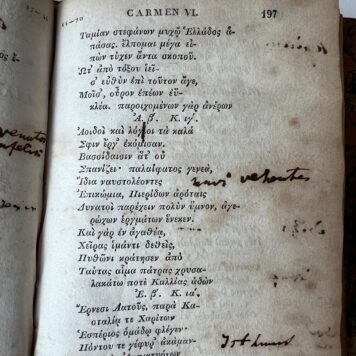 CARMEN VI.
197
Ταμίαν στεφάνων μυχῷ Ἑλλάδος ἁ-
πάσας. ἔλπομαι μέγα εἰ-
πὼν τύχῃν ἄντα σκοποῦ.
Ὥτ' ἀπὸ τόξου ἱεὶ-
ς' εὐθὺν ἐπὶ τοῦτον ἄγε,
Μοῖσ', οὖρον ἐπέων εὐ-
κλέα. παροιχομένων γὰρ ἀνέρων
Ἀ. β'. Κ. ιγ'.
Ἀοιδοὶ καὶ λόγιοι τὰ καλὰ
Σφιν ἔργ' ἐκόμισαν.
Βασσίδαισιν ἅτ' οὐ
Σπανίζει· παλαίφατος γενεά,
Ἴδια ναυστολέοντες
navi vehentes
Ἐπικώμια, Πιερίδων ἀρόταις
Δυνατοὶ παρέχειν πολὺν ὕμνον, ἀγε-
ρώχων ἐργμάτων ἕνεκεν.
Καὶ γὰρ ἐν ἀγαθέᾳ,
Χεῖρας ἱμάντι δεθείς,
Πυθῶνι κράτησεν ἀπὸ
Ταύτας αἷμα πάτρας χρυσα-
λακάτω ποτὲ Καλλίας ἁδὼν
Ἐ. β'. Κ. ια'.
Ἔρνεσι Λατοῦς, παρὰ Κα-
σταλίᾳ τε Χαρίτων
Ἑσπέριος ὁμάδῳ φλέγεν·
Πόντου τε γέφυρ' ἀκάμαν-
Isthmus